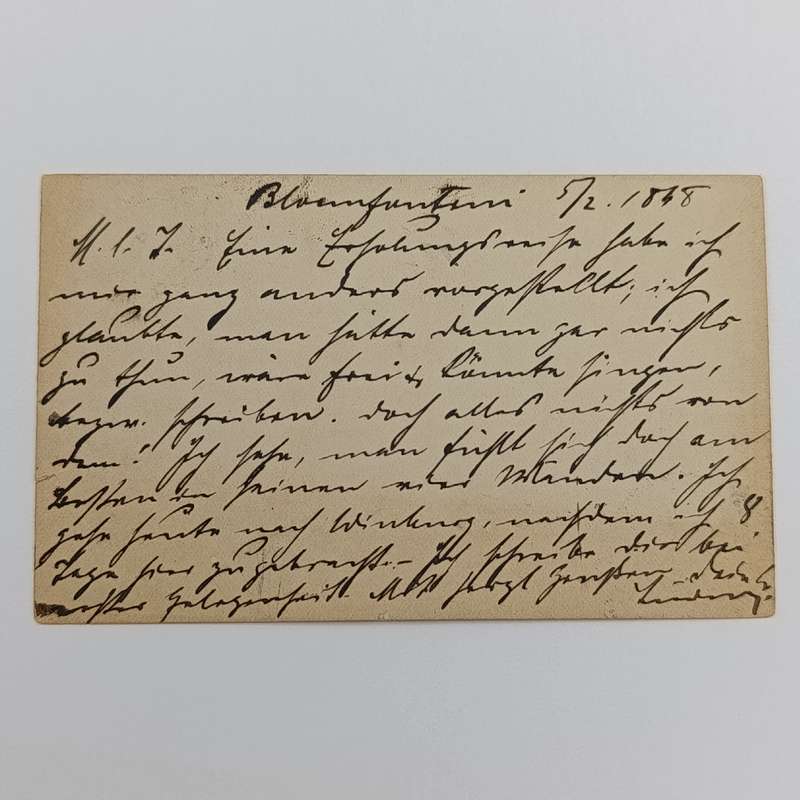 Bloemfontein 5/2. 1898
M. l. J. Eine Erholungsreise habe ich
mir ganz anders vorgestellt; ich
glaubte, man hätte dann gar nichts
zu thun, wäre frei & könnte singen,
bezw. schreiben. Doch alles nichts von
dem! Ich sehe, man fühlt sich doch am
Besten in seinen vier Wänden. Ich
gehe heute nach Winburg, nachdem ich 8
Tage hier zugebracht. – Ich schreibe dir bei
erster Gelegenheit. Mit herzl Grüßen Dein
Ludwig.